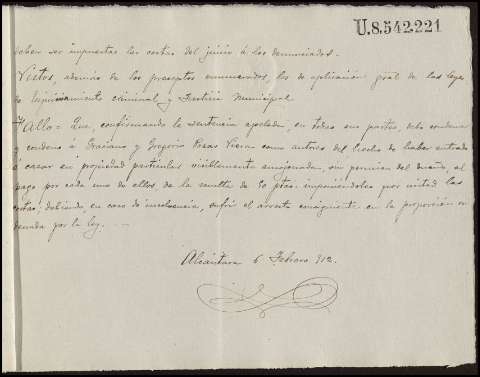 U.8.542.221
deben ser impuestas las costas del juicio á los denunciados.
Vistos, además de los preceptos enumerados, los de aplicación gral de las leyes
de Enjuiciamiento criminal y Justicia Municipal
Fallo = Que, confirmando la sentencia apelada, en todas sus partes, debo condenar
y condeno á Graciano y Gregorio Rosas Viera como autores del hecho de haber entrado
á cazar en propiedad particular visiblemente amojonada, sin permiso del dueño, al
pago por cada uno de ellos de la multa de 50 ptas. imponiéndoles por mitad las
costas; debiendo en caso de insolvencia, sufrir el arresto consiguiente en la proporción or
denada por la ley. - -
Alcántara 6 Febrero 912.